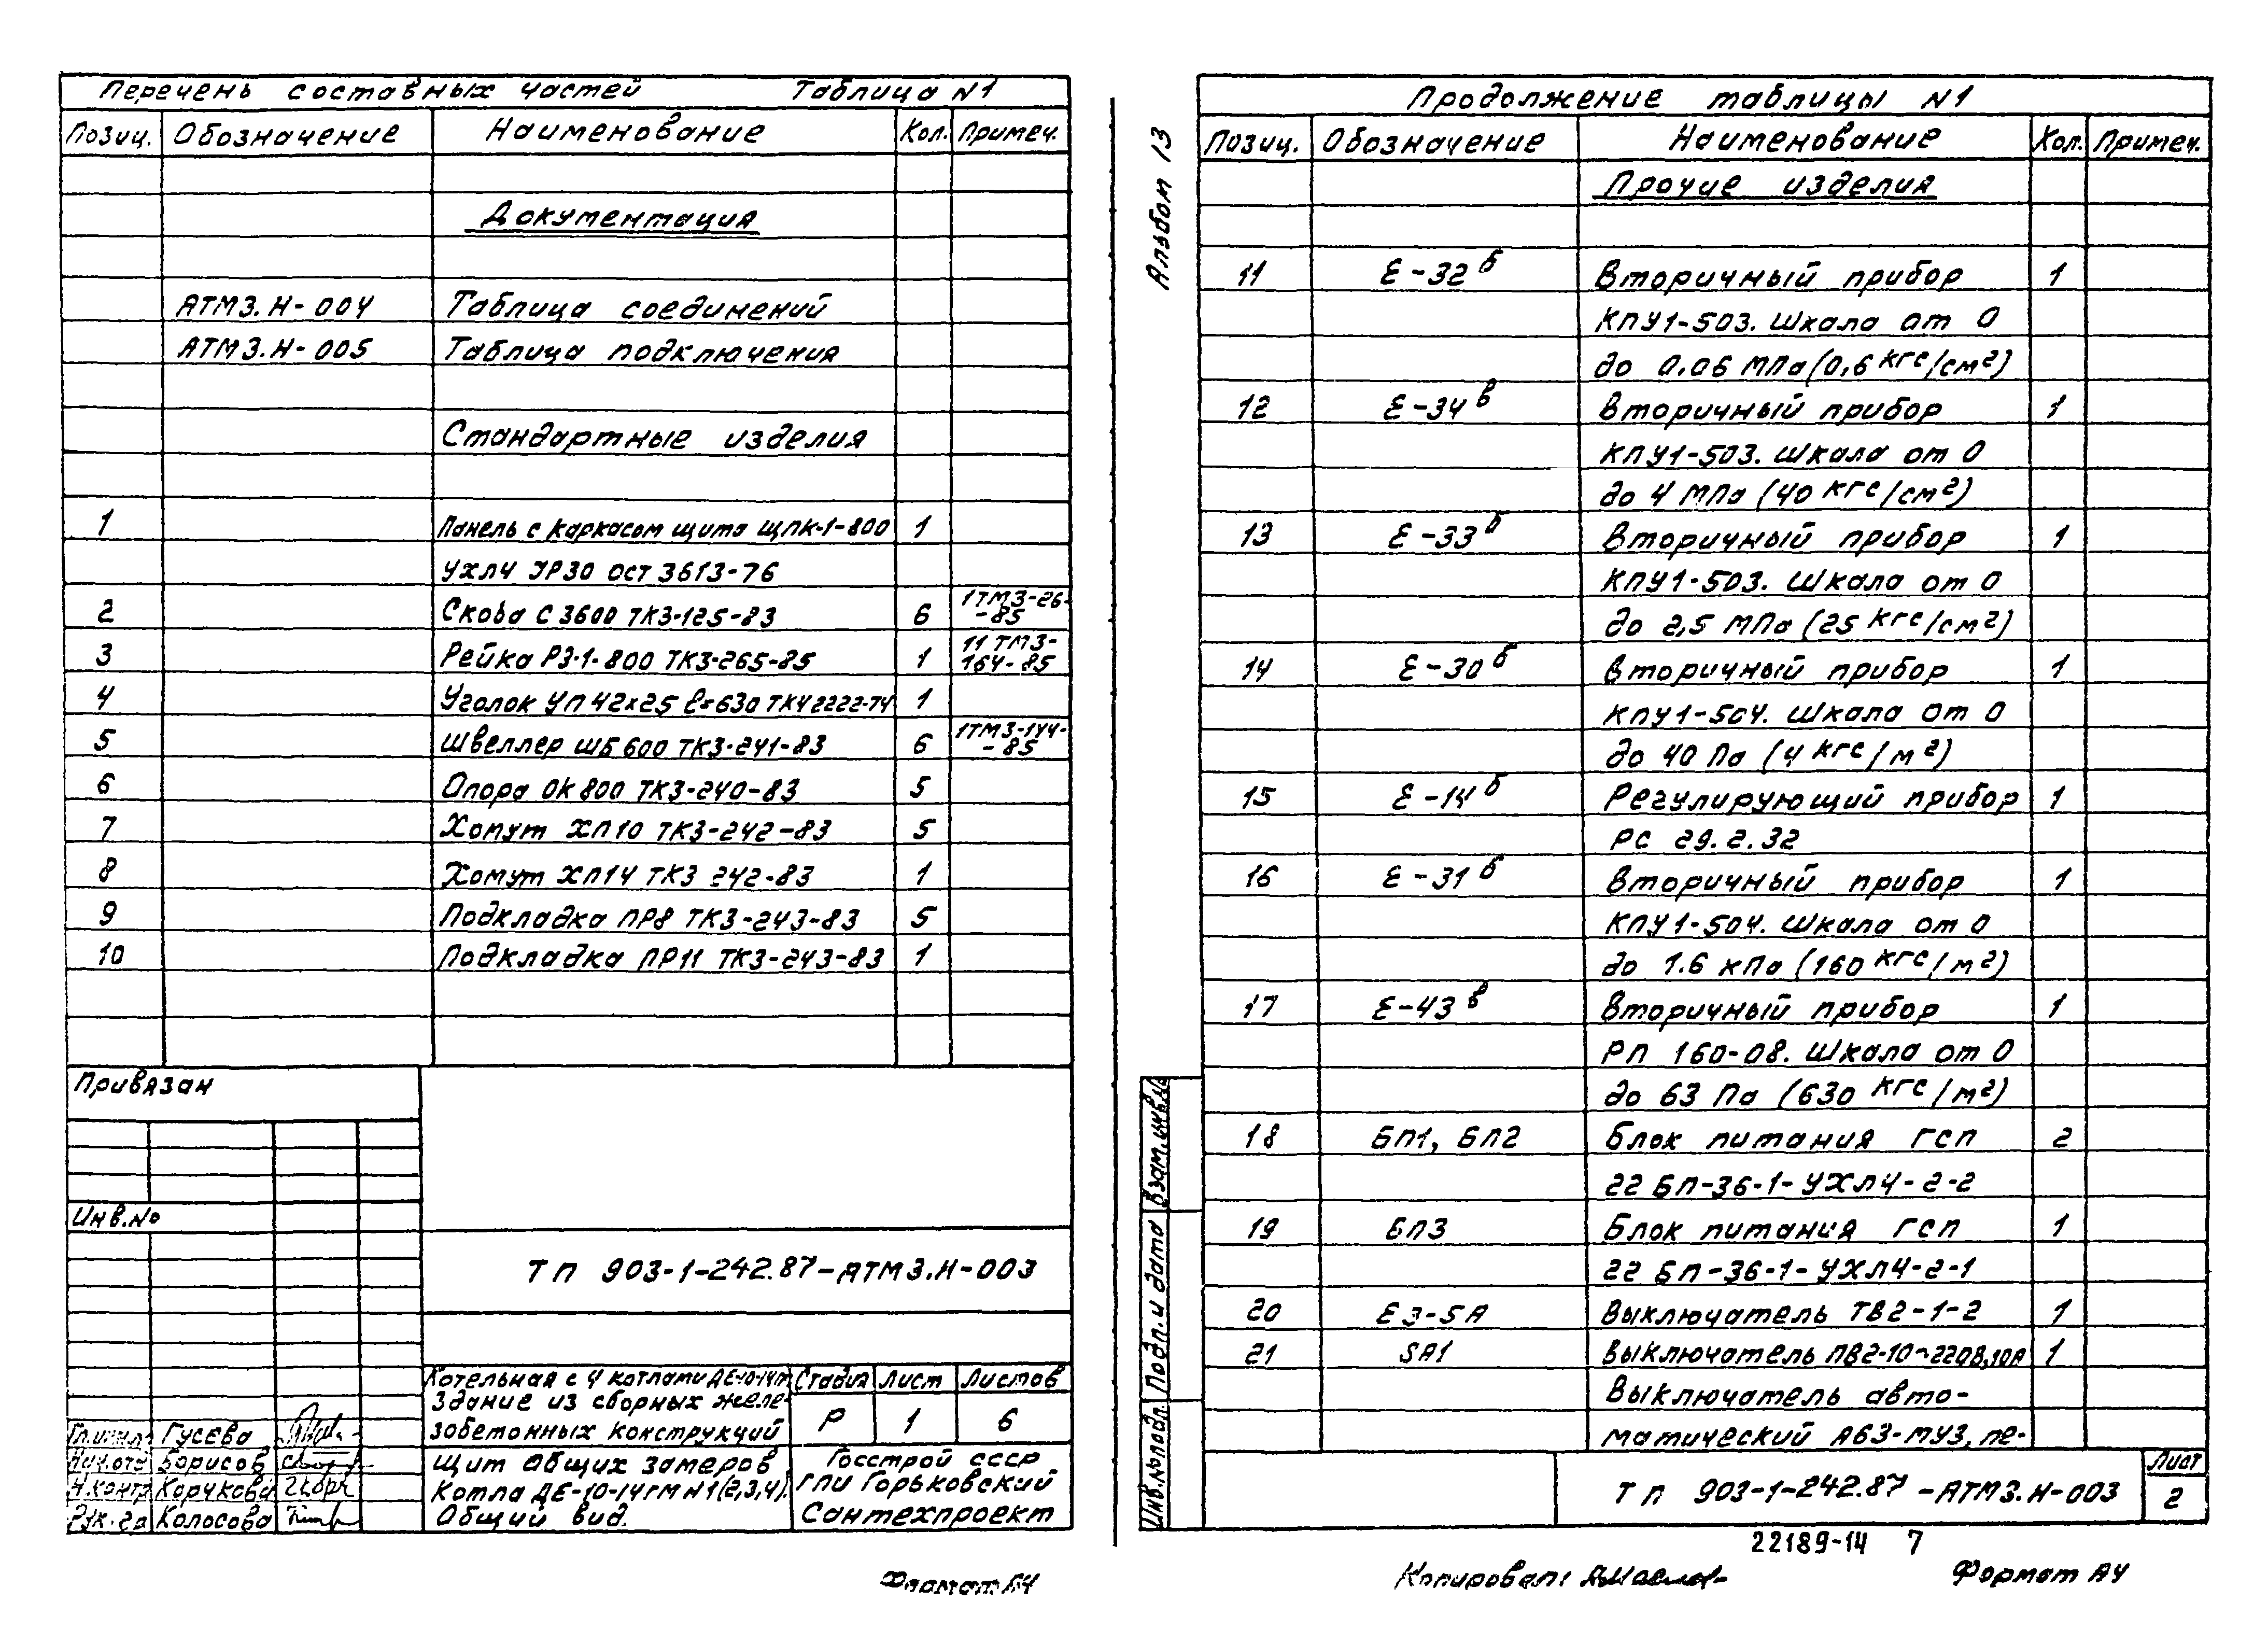 Перечень составных частей Таблица N1
Позиц. Обозначение Наименование Кол. Примеч.
Документация
АТМ3.Н-004 Таблица соединений
АТМ3.Н-005 Таблица подключения
Стандартные изделия
1 Панель с каркасом щита ЩПК-1-800 1
УХЛ4 УР30 ОСТ 3613-76
2 Скоба С3600 ТК3-125-83 6 1ТМ3-26-
-85
3 Рейка Р3-1-800 ТК3-265-85 1 11 ТМ3-
164-85
4 Уголок УП 42х25 ℓ=630 ТК4 2222-74 1
5 Швеллер ШБ 600 ТК3-241-83 6 1ТМ3-144-
-85
6 Опора ОК 800 ТК3-240-83 5
7 Хопут ХП10 ТК3-242-83 5
8 Хомут ХП14 ТК3 242-83 1
9 Подкладка ПР8 ТК3-243-83 5
10 Подкладка ПР11 ТК3-243-83 1
Привязан
Инв.№
ТП 903-1-242.87-АТМ3.Н-003
Котельная с 4 котлами ДЕ-10-14ГМ Стадия Лист Листов
Здание из сборных желе-
зобетонных конструкций Р 1 6
Гусева
Борисов
Н.контр Корчкова
Рук.гр Колосова
Щит общих замеров
Котла ДЕ-10-14ГМ N1(2,3,4).
Общий вид.
Госстрой СССР
ГПИ Горьковский
Сантехпроект
Формат А4
Альбом 13
Продолжение таблицы N1
Позиц. Обозначение Наименование Кол. Примеч.
Прочие изделия
11 Е-32б Вторичный прибор 1
КПУ1-503. Шкала от 0
до 0.06 МПа (0,6 кгс/см²)
12 Е-34в Вторичный прибор 1
КПУ1-503. Шкала от 0
до 4 МПа (40 кгс/см²)
13 Е-33б Вторичный прибор 1
КПУ1-503. Шкала от 0
до 2,5 МПа (25 кгс/см²)
14 Е-30б Вторичный прибор 1
КПУ1-504. Шкала от 0
до 40 Па (4 кгс/м²)
15 Е-14б Регулирующий прибор 1
РС 29.2.32
16 Е-31б Вторичный прибор 1
КПУ1-504. Шкала от 0
до 1.6 кПа (160 кгс/м²)
17 Е-43в Вторичный прибор 1
РП 160-08. Шкала от 0
до 63 Па (630 кгс/м²)
18 БП1, БП2 Блок питания ГСП 2
22 БП-36-1-УХЛ4-2-2
19 БП3 Блок питания ГСП 1
22 БП-36-1-УХЛ4-2-1
20 Е3-SА Выключатель ТВ2-1-2 1
21 SА1 Выключатель ПВ2-10~220В,10А 1
Выключатель авто-
матический А63-МУ3, пе-
Инв.№подл. Подп. и дата Взам.инв.№
ТП 903-1-242.87-АТМ3.Н-003
Лист
2
22189-14 7
Копировал:
Формат А4